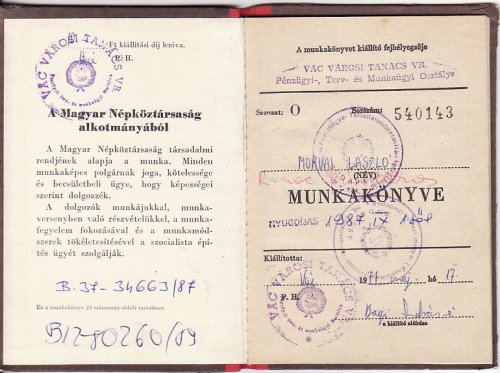 Ft kiállítási díj leróva.
P. H.
VÁC VÁROSI TANÁCS VB.
A Magyar Népköztársaság
alkotmányából
A Magyar Népköztársaság társadalmi
rendjének alapja a munka. Minden
munkaképes polgárnak joga, kötelessége
és becsületbeli ügye, hogy képességei
szerint dolgozzék.
A dolgozók munkájukkal, munka-
versenyben való részvételükkel, a munka-
fegyelem fokozásával és a munkamód-
szerek tökéletesítésével a szocialista épí-
tés ügyét szolgálják.
B.-37-34663/87
Ez a munkakönyv 24 számozott oldalt tartalmaz.
B1280260/89
A munkakönyvet kiállító fejbélyegzője
VÁC VÁROSI TANÁCS VB.
Pénzügyi-, Terv- és Munkaügyi Osztálya
Sorozat: O Sorszám: 540143
MORVAI LÁSZLÓ
(NÉV)
MUNKAKÖNYVE
NYUGDÍJAS 1987. IX
Kiállította:
Vác 19 hó 17.
P. H.
VÁC VÁROSI TANÁCS VB.
a kiállító aláírása